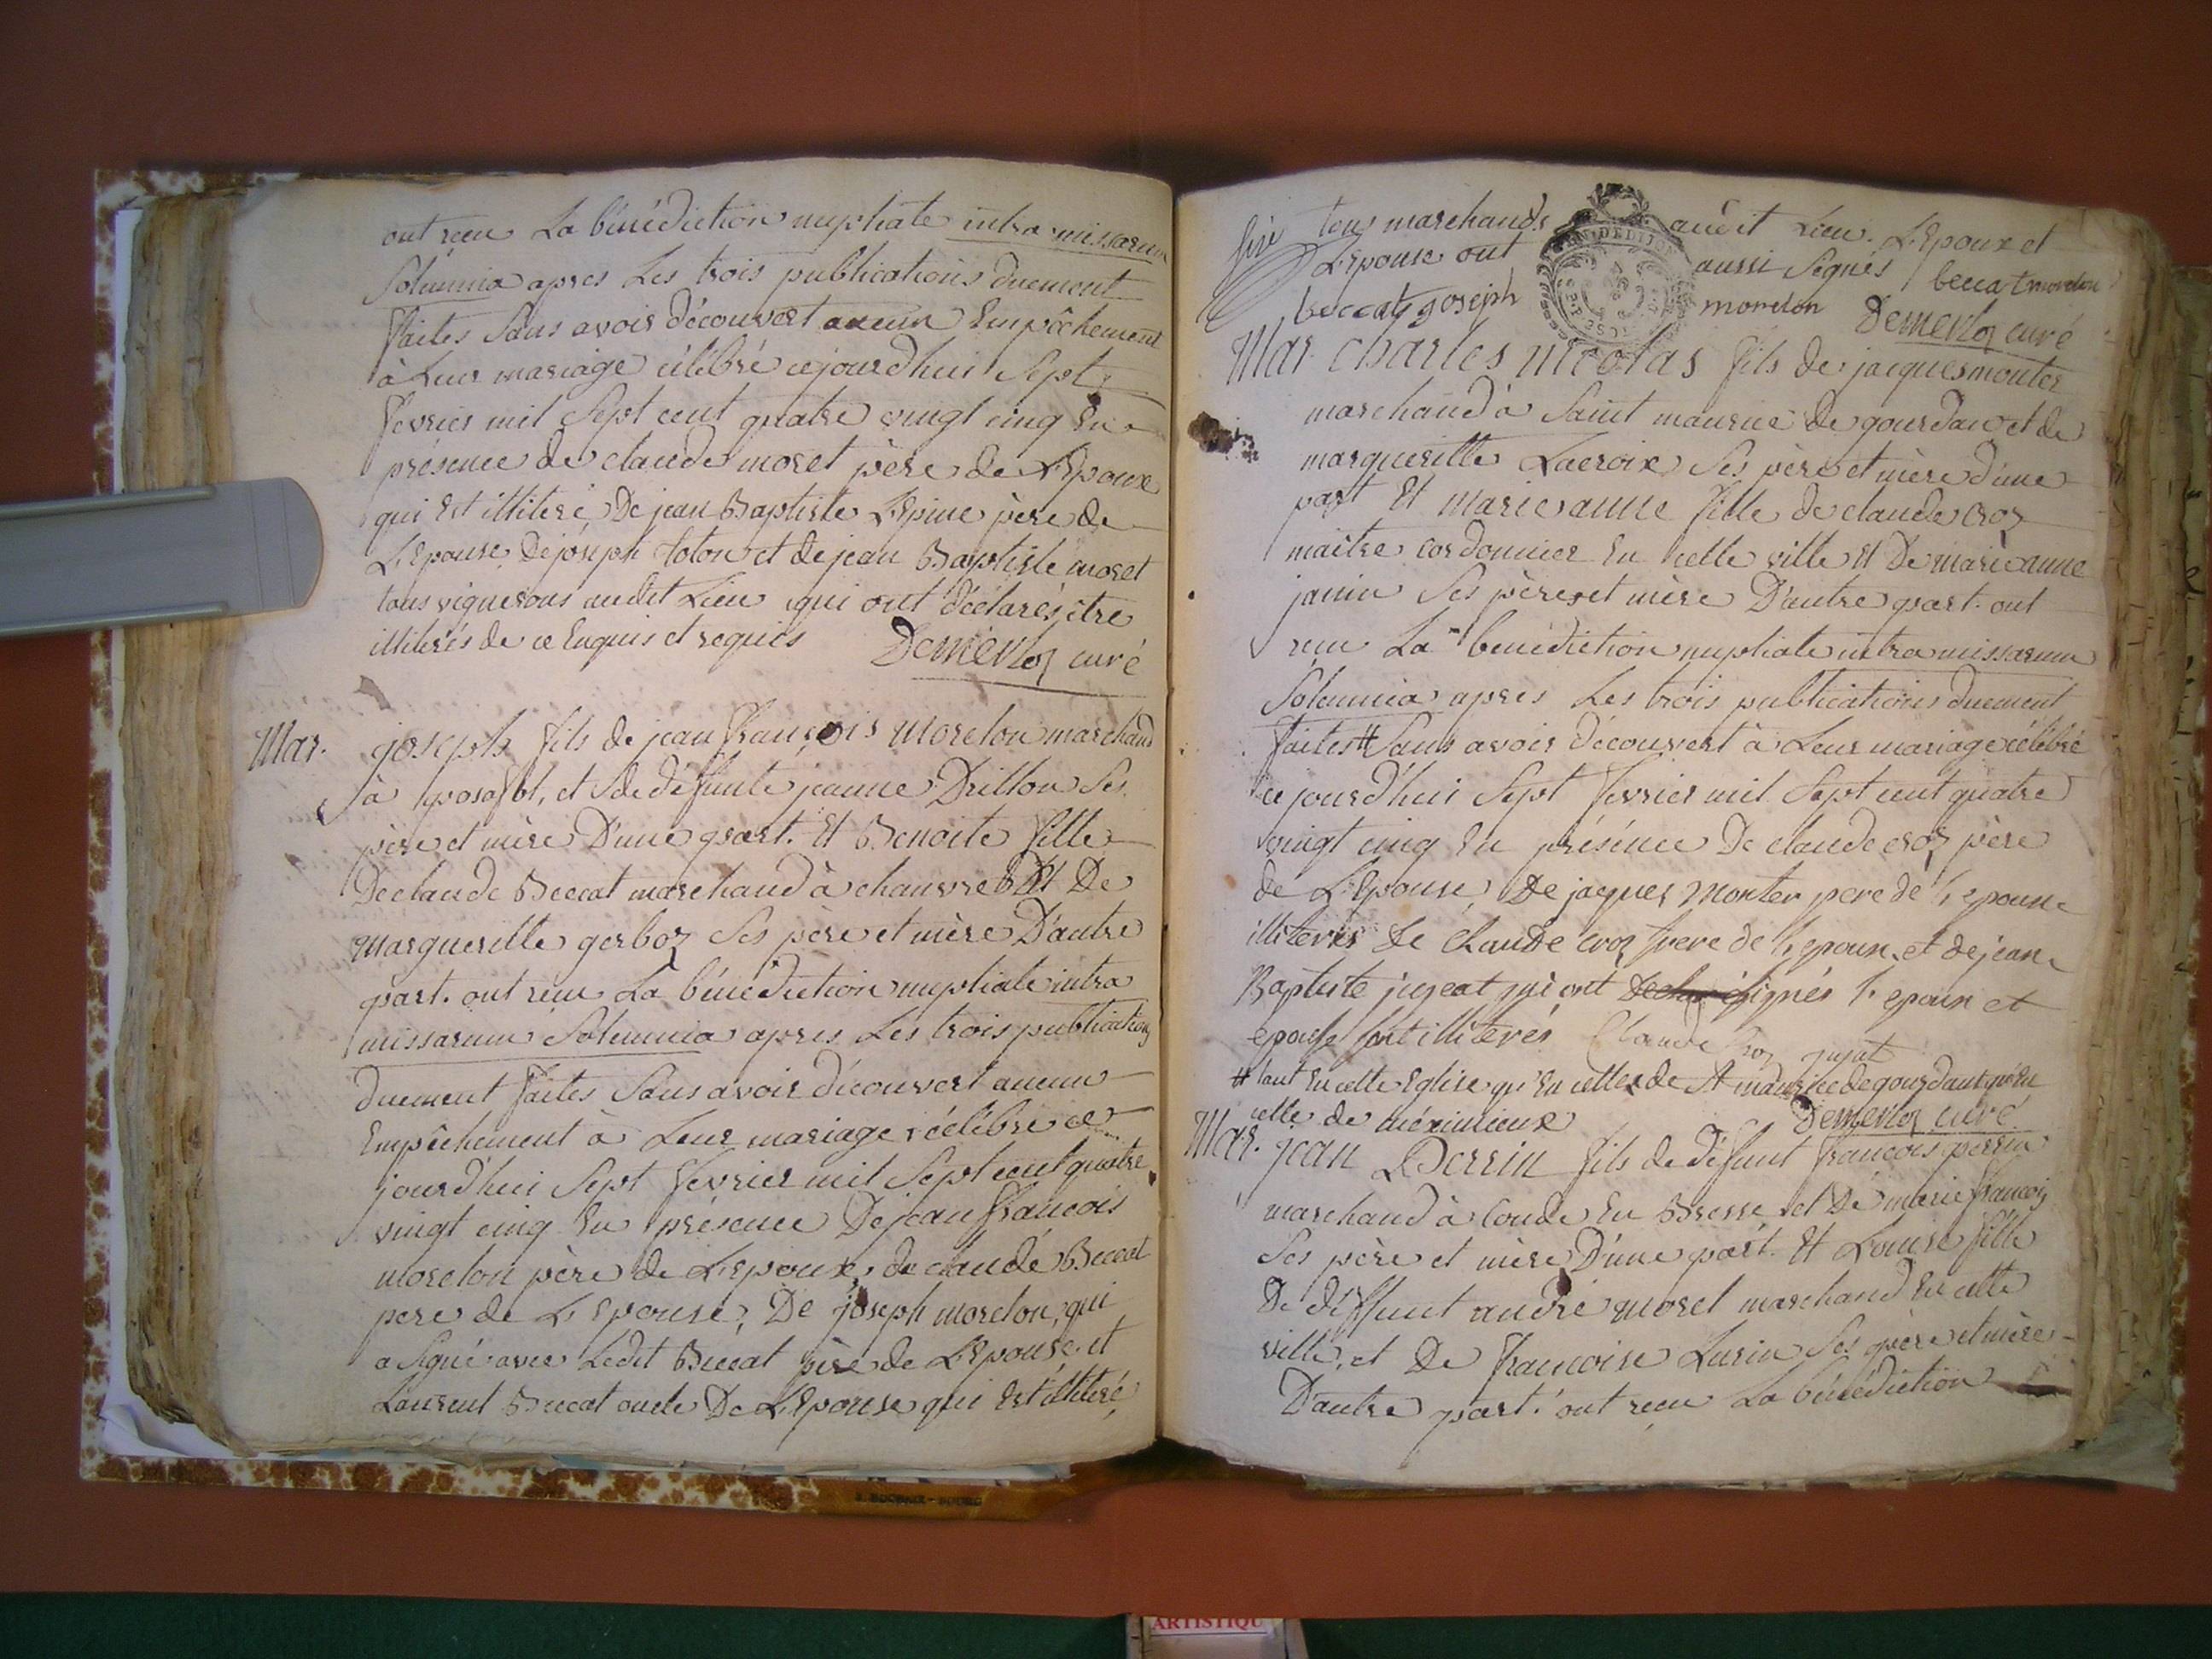 ont reçu La bénédiction nuptiale intra missarum
Solemnia apres Les trois publications duement
faites Sans avoir découvert aucun Empêchement
à Leur mariage célébré cejourdhui Sept
fevrier mil Sept cent quatre vingt cinq En
présence de claude moret père de L'Epoux
qui Est illiteré, De jean Baptiste L'Epine père de
L'Epouse, De joseph toton et de jean Baptiste moret
tous vignerons audit Lieu qui ont déclarés être
illiterés de ce Enquis et requis Demerloz curé
Mar. joseph fils de jean françois moreton marchand
à et de défunte jeanne Drillon Ses
père et mère D'une part. Et Benoite fille
De claude Beccat marchand à Et De
margueritte gerboz Ses père et mère D'autre
part. ont reçu La bénédiction nuptiale intra
missarum Solemnia apres Les trois publications
duement faites Sans avoir découvert aucun
Empêchement à Leur mariage célébré ce
jourd'hui Sept fevrier mil Sept cent quatre
vingt cinq En présence De jean françois
moreton père de L'Epoux, de claude Beccat
pere de L'Epouse, De joseph moreton, qui
a Signé avec Ledit Beccat père de L'Epouse et
Laurent Beccat oncle De L'Epouse qui Est illiteré,
tous marchands audit Lieu. L'Epoux et
L'Epouse ont aussi Signés beccat moreton
beccat joseph moreton Demerloz curé
Mar. charles nicolas fils de jacques monter
marchand à Saint maurice de gourdan et de
margueritte Lacroix Ses père et mère d'une
part Et marie anne fille de claude croz
maitre cordonnier En cette ville Et De marie anne
janin Ses père et mère D'autre part. ont
reçu La benédiction nuptiale intra missarum
Solemnia apres Les trois publications duement
faites # Sans avoir découvert à Leur mariage célébré
ce jourd'hui Sept fevrier mil Sept cent quatre
vingt cinq En présence De claude croz père
de L'Epouse, De jacques monter pere de l'epoux
illiterés De Claude croz frere de l'epouse et de jean
Baptiste jujeat qui ont signés l'epoux et
epouse sont illiterés Claude Croz jujat
# tant En cette Eglise qu'En celle de St maurice de gourdan qu'En
celle de méximieux Demerloz curé
Mar. jean Perrin fils de défunt françois perrin
marchand à Conde En Bresse et De marie françois
Ses père et mère D'une part. Et Louise fille
De déffunt andré moret marchand En cette
ville, et De francoise Lurin Ses père et mère
D'autre part. ont reçu La bénédiction